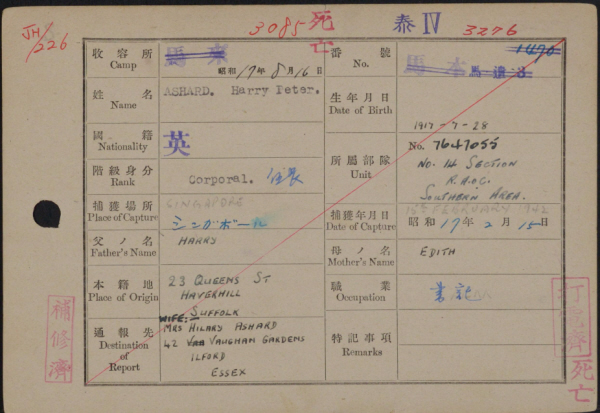 JH/226
3085
死亡
泰 IV
3276
1470
收容所 Camp
昭和17年8月16日
番號 No.
馬本馬還3
姓名 Name
ASHARD. Harry Peter.
生年月日 Date of Birth
1917-7-28
國籍 Nationality
英
階級身分 Rank
Corporal.
所屬部隊 Unit
No. 7647055
NO. 14 SECTION
R.A.O.C.
SOUTHERN AREA.
捕獲場所 Place of Capture
SINGAPORE
シンガポール
捕獲年月日 Date of Capture
15th FEBRUARY 1942
昭和17年2月15日
父ノ名 Father's Name
HARRY
母ノ名 Mother's Name
EDITH
本籍地 Place of Origin
23 QUEENS ST
HAVERHILL
SUFFOLK
職業 Occupation
通報先 Destination of Report
WIFE:-
MRS HILARY ASHARD
42 VAUGHAN GARDENS
ILFORD
ESSEX
特記事項 Remarks
補修濟
打電濟
死亡